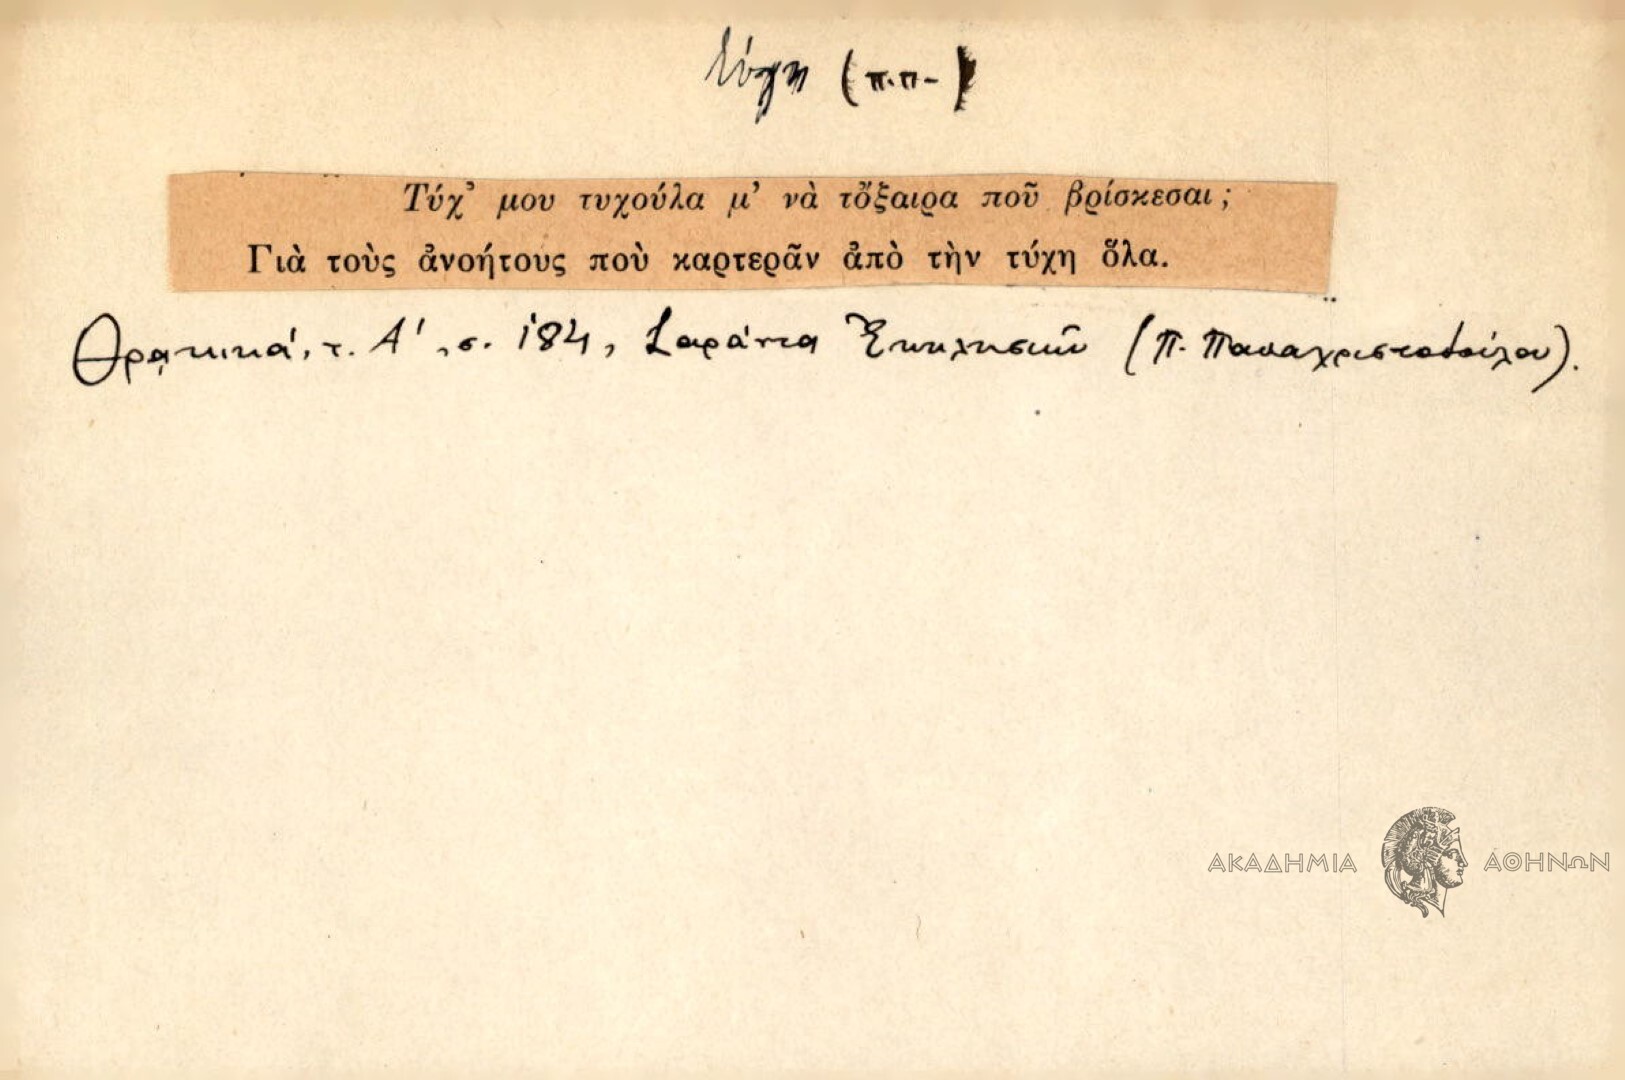 τύχη (π.π-)
Τύχ' μου τυχούλα μ' νὰ τὄξαιρα ποῦ βρίσκεσαι ;
Γιὰ τοὺς ἀνοήτους ποὺ καρτερᾶν ἀπὸ τὴν τύχη ὅλα.
Θρᾳκικά, τ. Α', σ. 184, Σαράντα Ἐκκλησιῶν (Π. Παπαχριστοδούλου).
ΑΚΑΔΗΜΙΑ ΑΘΗΝΩΝ